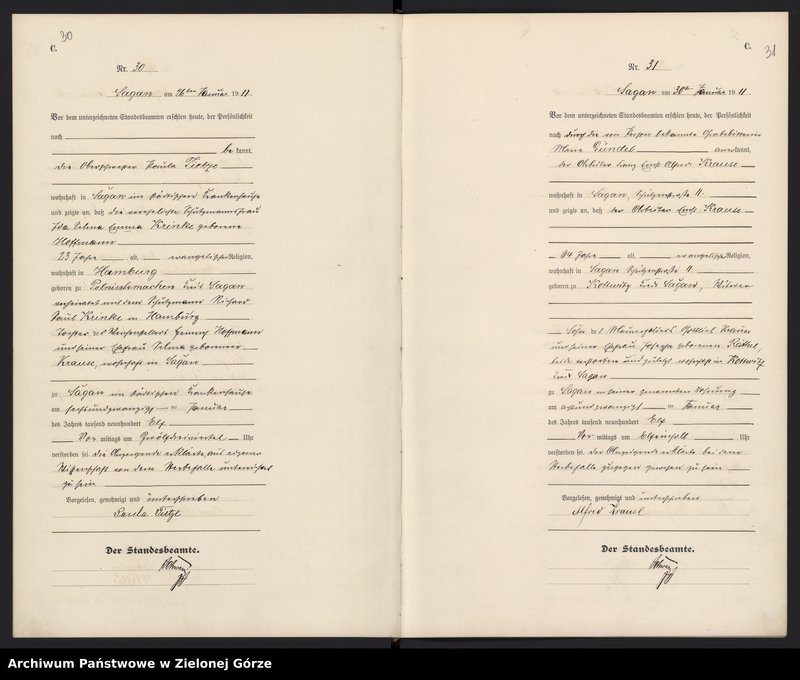 30
C.
Nr. 30
Sagan am 26ten Januar 1911
Vor dem unterzeichneten Standesbeamten erschien heute, der Persönlichkeit
nach
be kannt,
die Paula
wohnhaft in Sagan im städtischen Krankenhause
und zeigte an, daß die verehelichte Schutzmannsfrau
Ida Selma Emma Krinke geborene
Hoffmann
23 Jahre alt, evangelischer Religion,
wohnhaft in Hamburg
geboren zu Polnischmachen Kreis Sagan
verheiratet mit dem Schutzmann Richard
Paul Krinke in Hamburg
Tochter des Heinrich Hoffmann
und seiner Ehefrau Selma geborenen
Krause, wohnhaft in Sagan
zu Sagan im städtischen Krankenhause
am sechsundzwanzigsten Januar
des Jahres tausend neunhundert Elf
Vor mittags um Uhr
verstorben sei. die Anzeigende erklärte, aus eigener
Wissenschaft von dem Sterbefalle unterrichtet
zu sein
Vorgelesen, genehmigt und unterschrieben
Paula
Der Standesbeamte.
31
C.
Nr. 31
Sagan am 30ten Januar 1911
Vor dem unterzeichneten Standesbeamten erschien heute, der Persönlichkeit
nach durch die von Person bekannte
Marie Gündel anerkannt,
der Arbeiter Alfred Krause
wohnhaft in Sagan, Schützenstraße 11
und zeigte an, daß der Arbeiter Krause
64 Jahre alt, evangelischer Religion,
wohnhaft in Sagan Schützenstraße 11
geboren zu Kottwitz Kreis Sagan, Witwer
Sohn des Gottlieb Krause
und seiner Ehefrau geborenen
beide verstorben und zuletzt wohnhaft in Kottwitz
Kreis Sagan
zu Sagan in seiner genannten Wohnung
am achtundzwanzigsten Januar
des Jahres tausend neunhundert Elf
Vor mittags um Uhr
verstorben sei. der Anzeigende erklärte bei dem
Sterbefalle zugegen gewesen zu sein
Vorgelesen, genehmigt und unterschrieben
Alfred Krause
Der Standesbeamte.
Archiwum Państwowe w Zielonej Górze